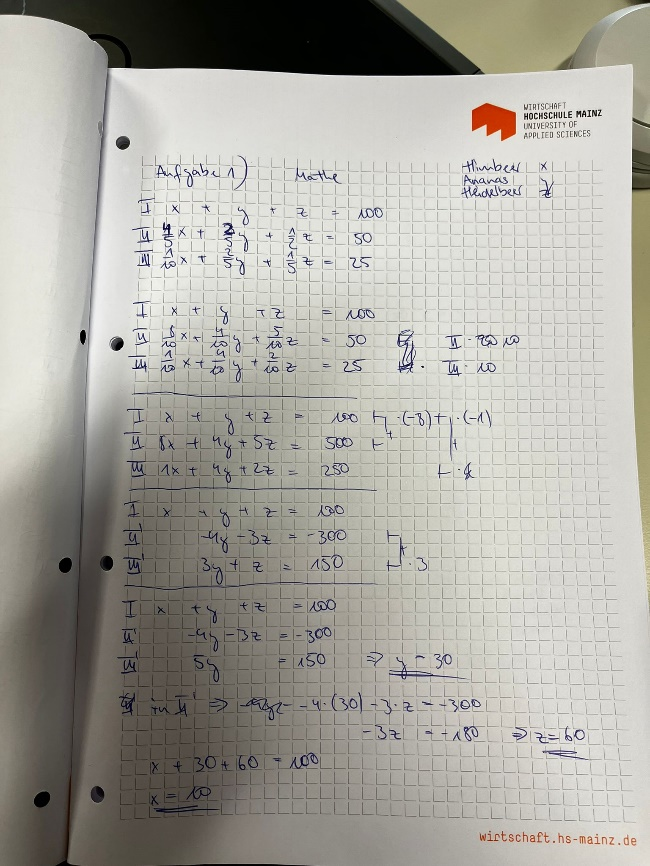 WIRTSCHAFT
HOCHSCHULE MAINZ
UNIVERSITY OF
APPLIED SCIENCES
Aufgabe 1) Mathe
Himbeer x
Ananas y
Heidelbeer z
I x + y + z = 100
II 4/5x + 2/5y + 1/2z = 50
III 1/10x + 2/5y + 1/5z = 25
I x + y + z = 100
II 8/10x + 4/10y + 5/10z = 50 II · 10
III 1/10x + 4/10y + 2/10z = 25 III · 10
I x + y + z = 100 ·(-8) + ·(-1)
II 8x + 4y + 5z = 500 +
III 1x + 4y + 2z = 250
I x + y + z = 100
II' -4y - 3z = -300
III' 3y + z = 150 · 3
I x + y + z = 100
II' -4y - 3z = -300
III' 5y = 150 ⇒ y = 30
in II' ⇒ -4·(30) - 3·z = -300
-3z = -180 ⇒ z = 60
x + 30 + 60 = 100
x = 10
wirtschaft.hs-mainz.de